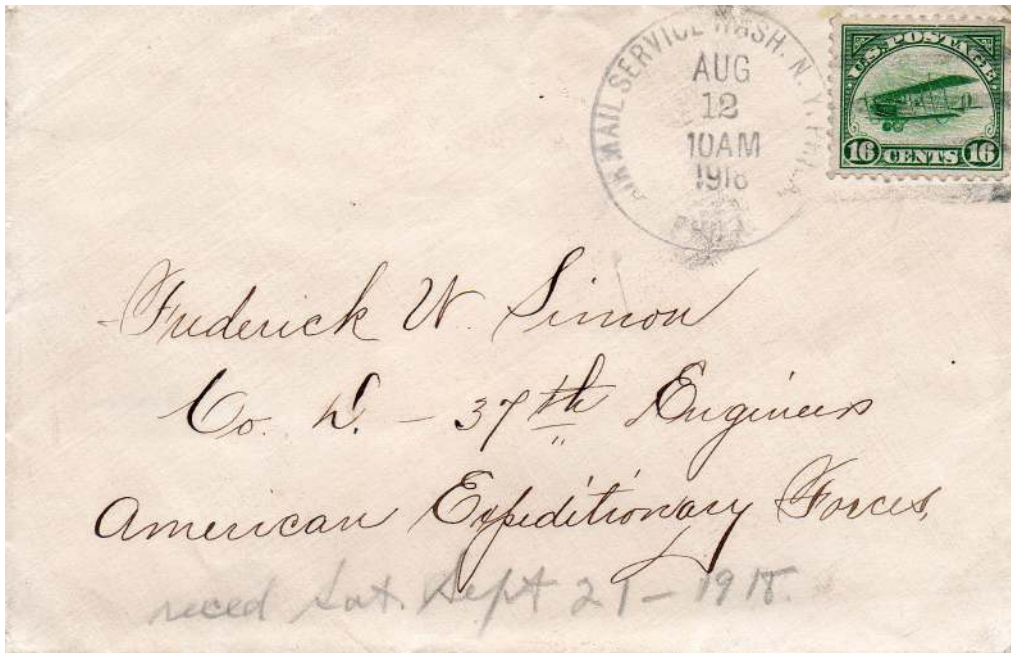 AIR MAIL SERVICE WASH. N. Y. PHILA
AUG
12
10AM
1918
PHILA
U.S. POSTAGE
16 CENTS 16
Frederick W. Simon
Co. D. - 37th Engineers
American Expeditionary Forces,
reced Sat. Sept 21 - 1918.